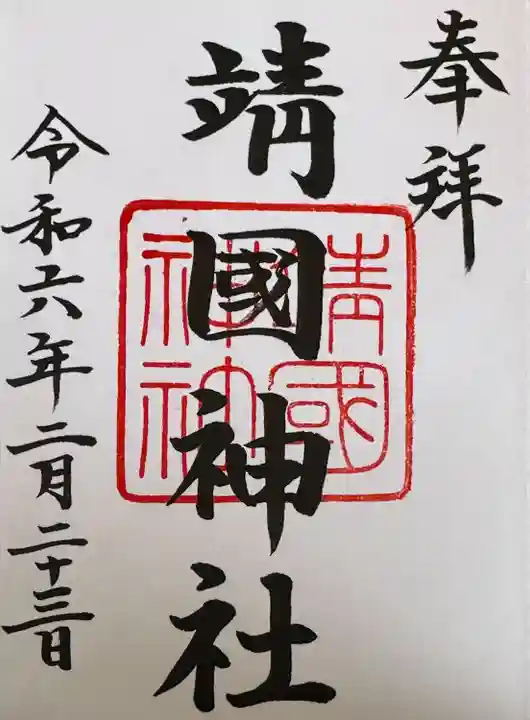 奉拜
靖國神社
靖國神社
令和六年二月二十三日